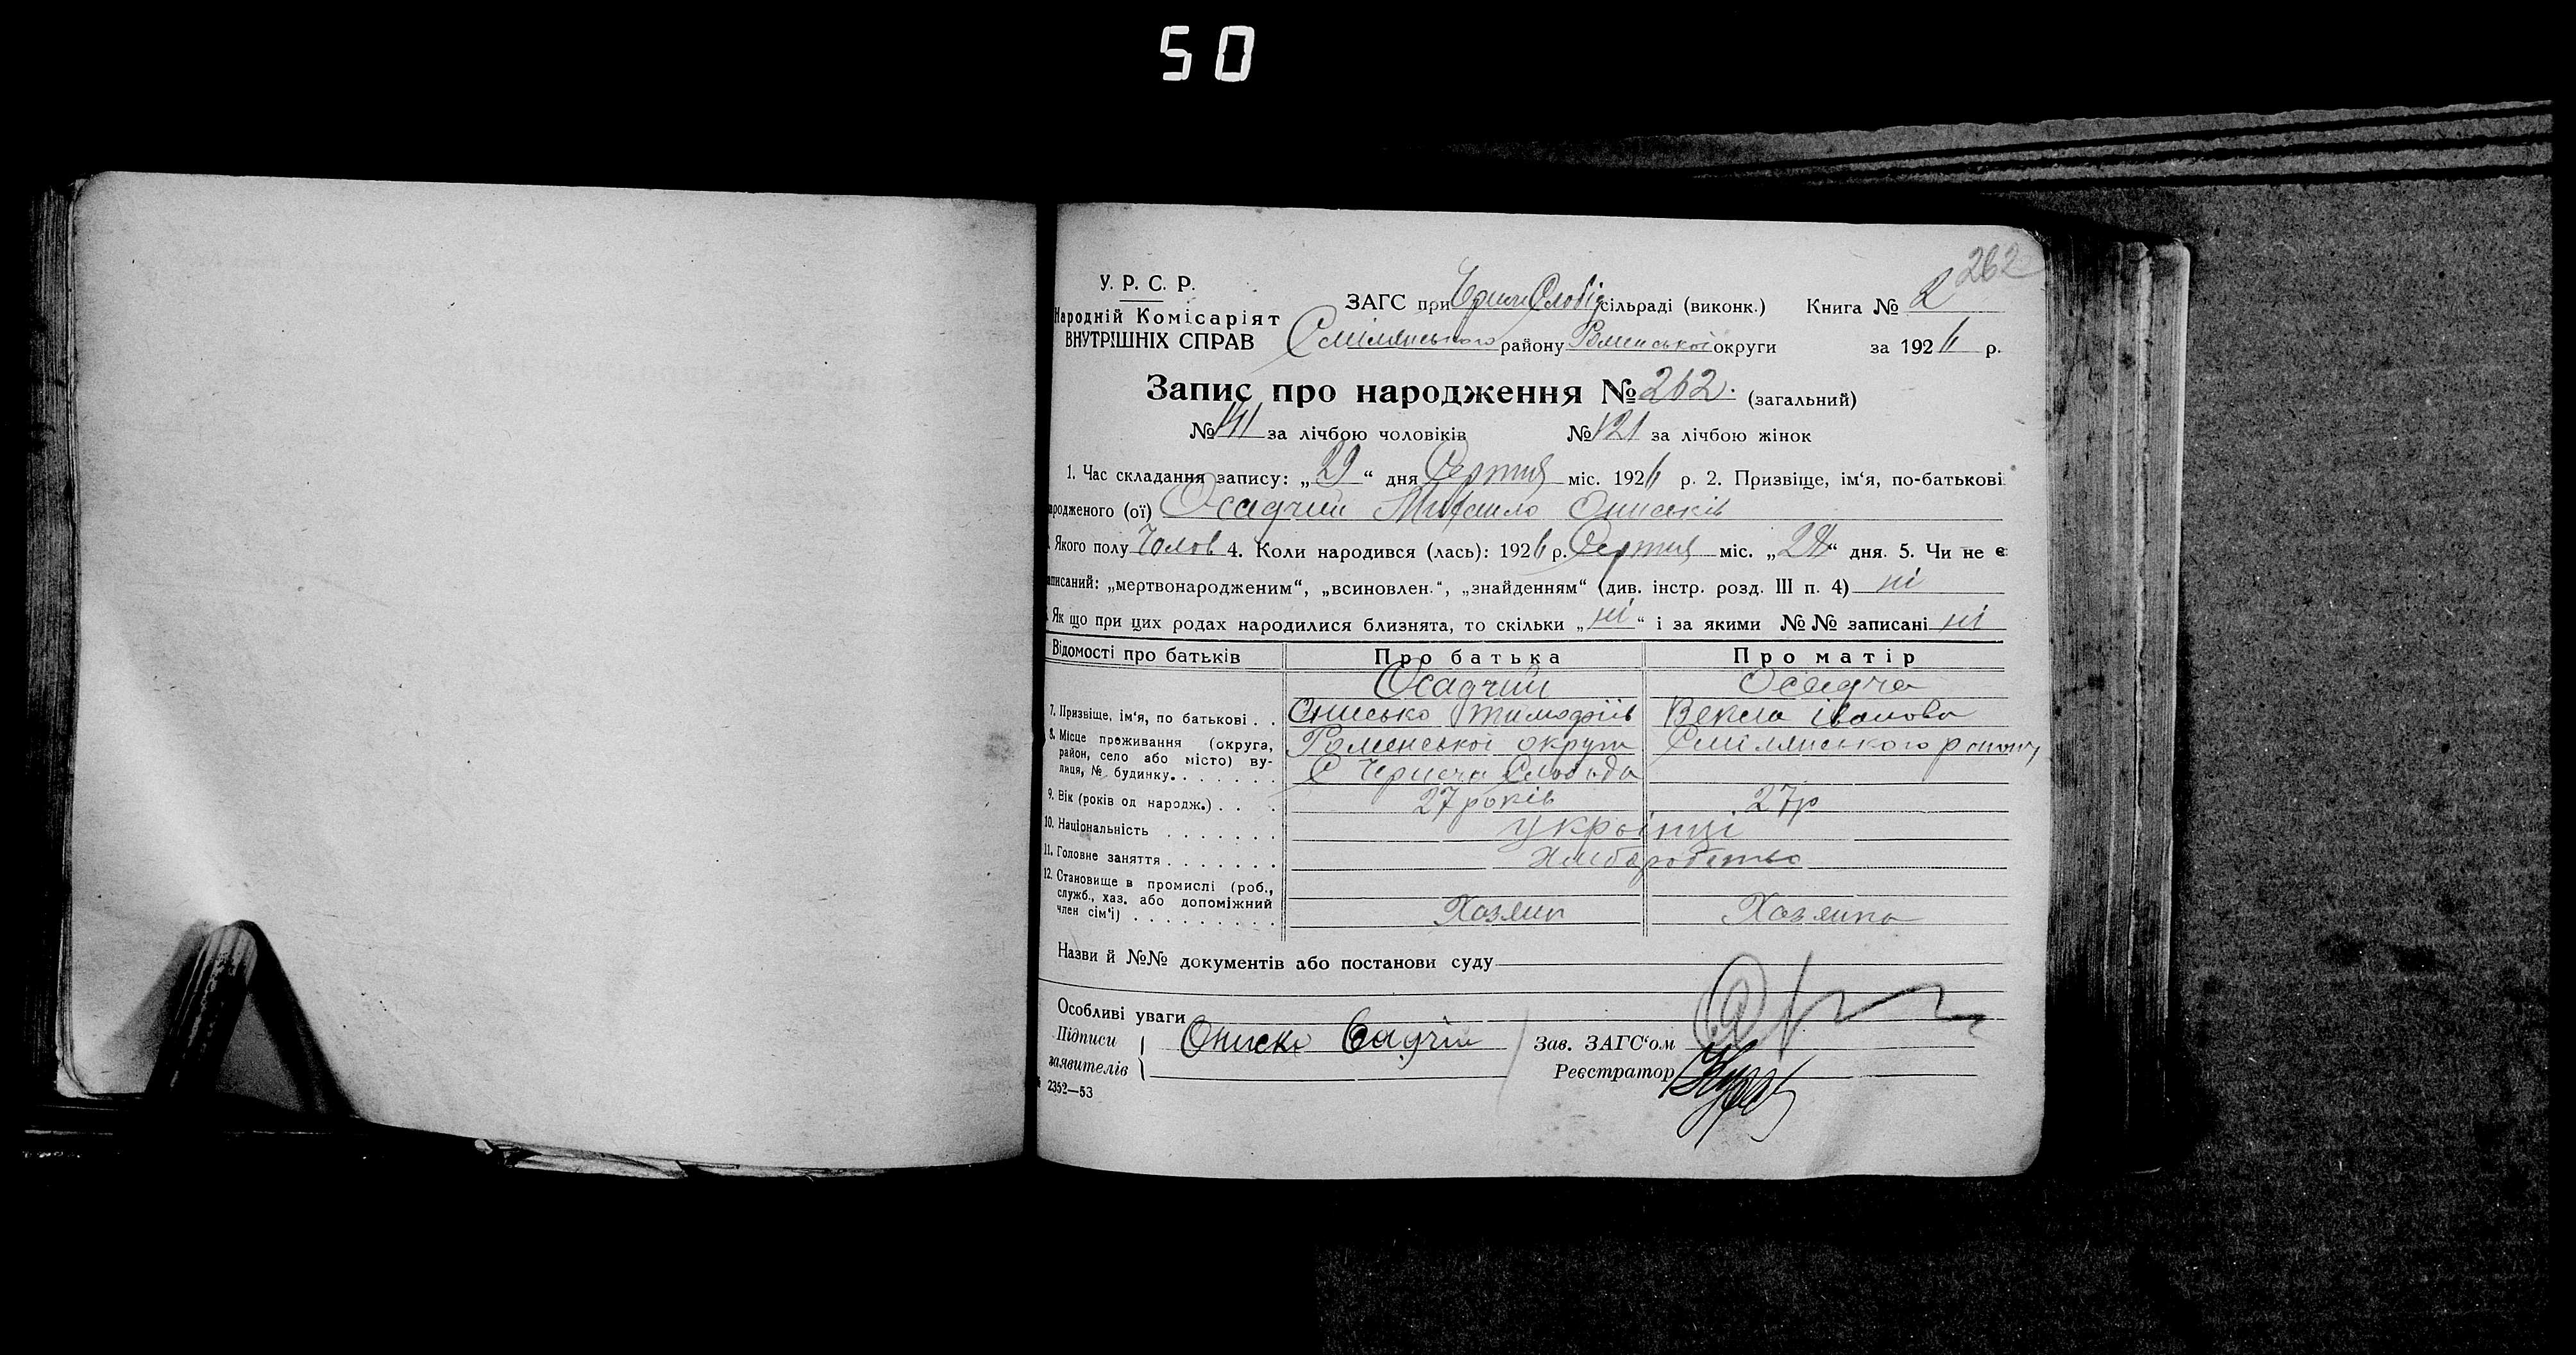 50
262
У. Р. С. Р.
Народній Комісаріят
ВНУТРІШНІХ СПРАВ
ЗАГС при Чернеч Слобід сільраді (виконк.) Книга № 2
Смілянського району Роменської округи за 1926 р.
Запис про народження № 262. (загальний)
№ 141 за лічбою чоловіків № 121 за лічбою жінок
1. Час складання запису: „29“ дня Серпня міс. 1926 р. 2. Призвіще, ім‘я, по-батькові
народженого (ої) Осадчий Михайло Ониськів
Якого полу Чолов 4. Коли народився (лась): 1926 р. Серпня міс. „28“ дня. 5. Чи не є
записаний: „мертвонародженим“, „всиновлен.“, „знайденням“ (див. інстр. розд. III п. 4) ні
Як що при цих родах народилися близнята, то скільки „ні“ і за якими №№ записані ні
Відомості про батьків Про батька Про матір
Осадчий Осадча
7. Призвіще, ім‘я, по батькові . . Онисько Тимофіїв Векла Іванова
8. Місце проживання (округа, район, село або місто) вулиця, № будинку. Роменської округи Смілянського району
С Чернеча Слобода
9. Вік (років од народж.) . . . 27 років 27 р
10. Національність українці
11. Головне заняття Хліборобство
12. Становище в промислі (роб., служб., хаз. або допоміжний член сім‘ї) Хазяин Хазяина
Назви й №№ документів або постанови суду
Особливі уваги
Підписи заявителів Ониско Садчій
Зав. ЗАГС‘ом
Реєстратор
2352—53